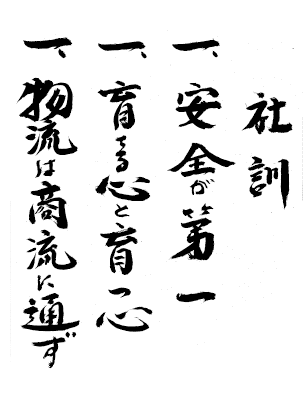 社訓
一、安全が第一
一、育てる心と育つ心
一、物流は商流に通ず